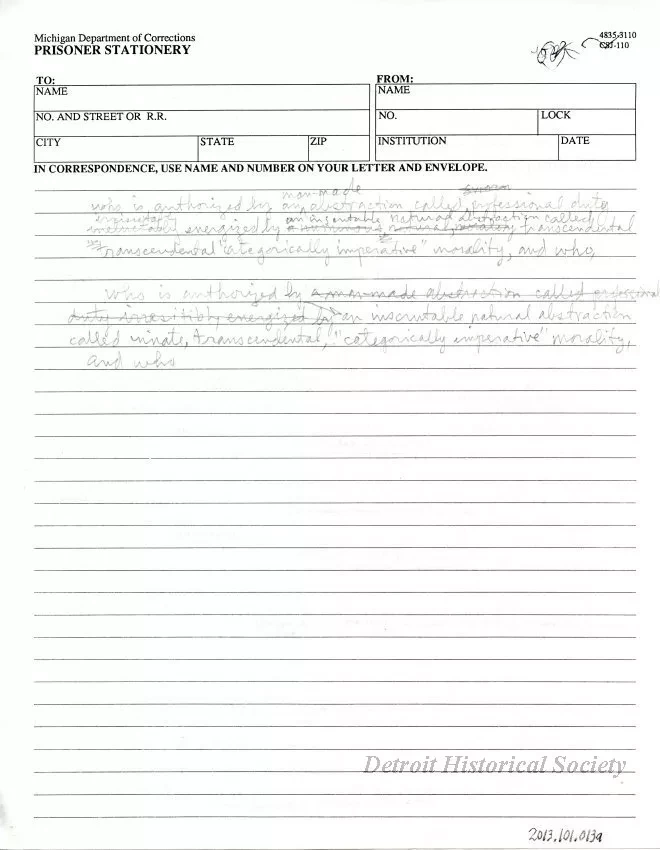 Michigan Department of Corrections
PRISONER STATIONERY
4835-3110
CSJ-110
TO:
NAME
NO. AND STREET OR R.R.
CITY STATE ZIP
FROM:
NAME
NO. LOCK
INSTITUTION DATE
IN CORRESPONDENCE, USE NAME AND NUMBER ON YOUR LETTER AND ENVELOPE.
man-made
who is authorized by an abstraction called professional duty
an inscrutable natural abstraction called
energized by transcendental
transcendental "categorically imperative" morality, and who,
who is authorized by a man-made abstraction called professional
duty irresitibly energized by an inscrutable natural abstraction
called innate, transcendental, "categorically imperative" morality,
and who
Detroit Historical Society
2013.101.013a